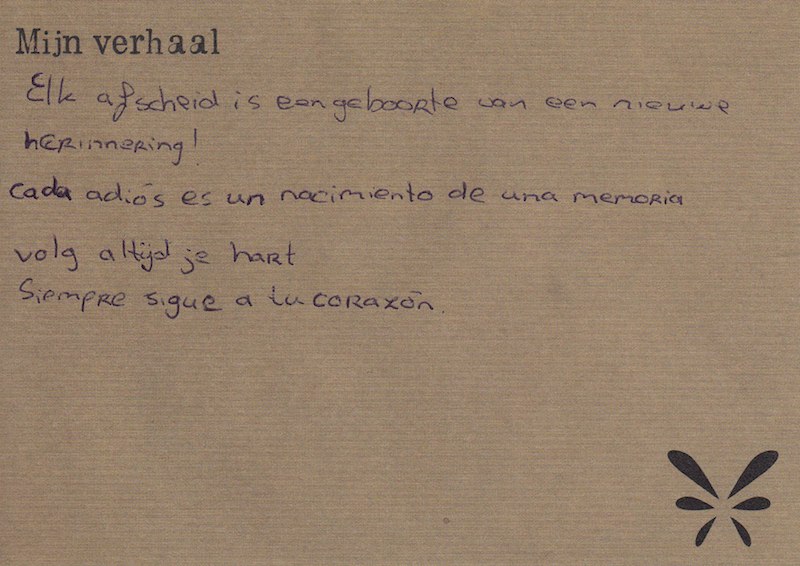 Mijn verhaal
Elk afscheid is een geboorte van een nieuwe
herinnering!
cada adiós es un nacimiento de una memoria
volg altijd je hart
Siempre sigue a tu corazón.